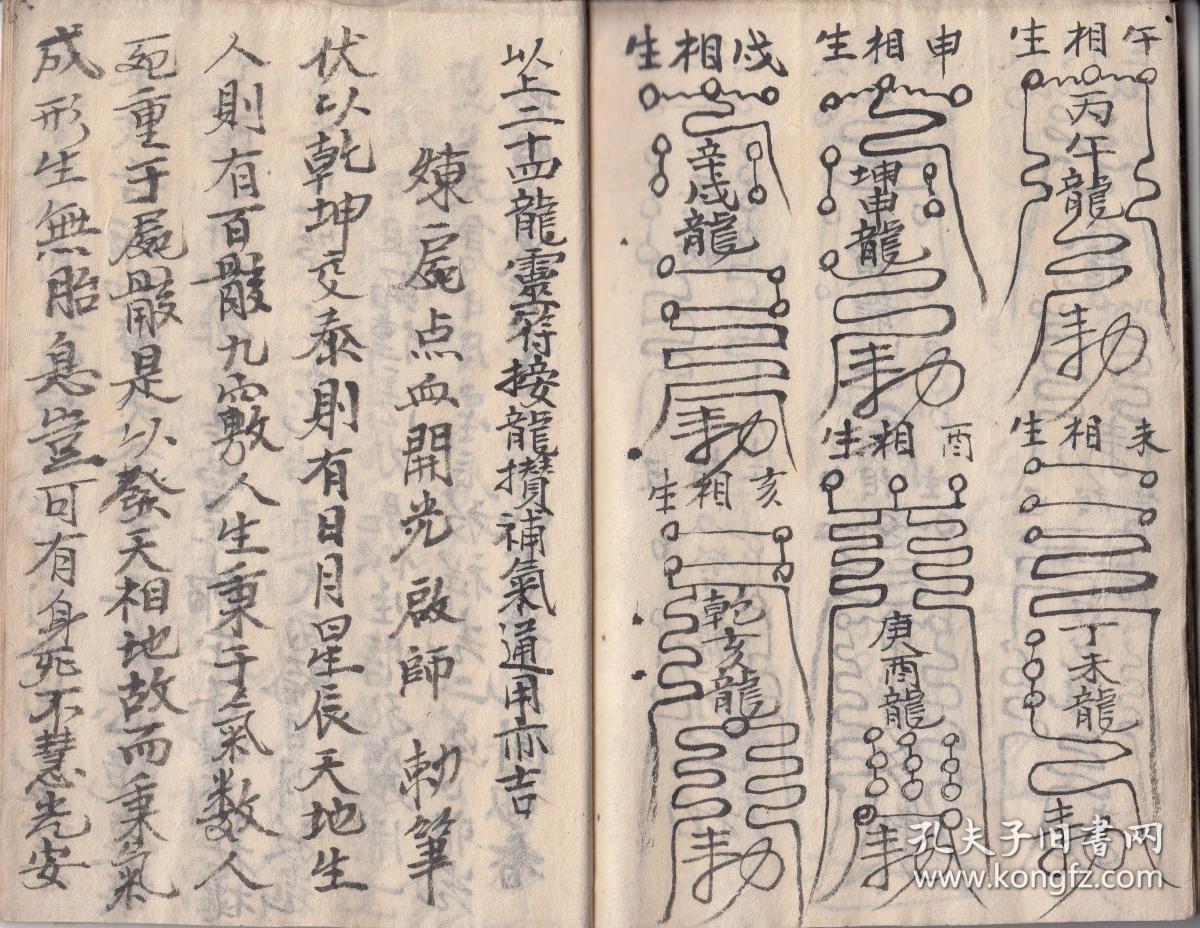 午相生
丙午龍
勅
未相生
丁未龍
勅
申相生
坤申龍
勅
酉相生
庚酉龍
勅
戌相生
辛戌龍
勅
亥相生
乾亥龍
勅
以上二十四龍靈符接龍攢補氣通用亦吉
煉屍点血開光啟師 勅筆
伏以乾坤交泰則有日月星辰天地生
人則有百骸九竅人生秉于氣数人
死重于屍骸是以發天相地故而秉气
成形生無胎息豈可有身死不慧光安
孔夫子旧书网
www.kongfz.com